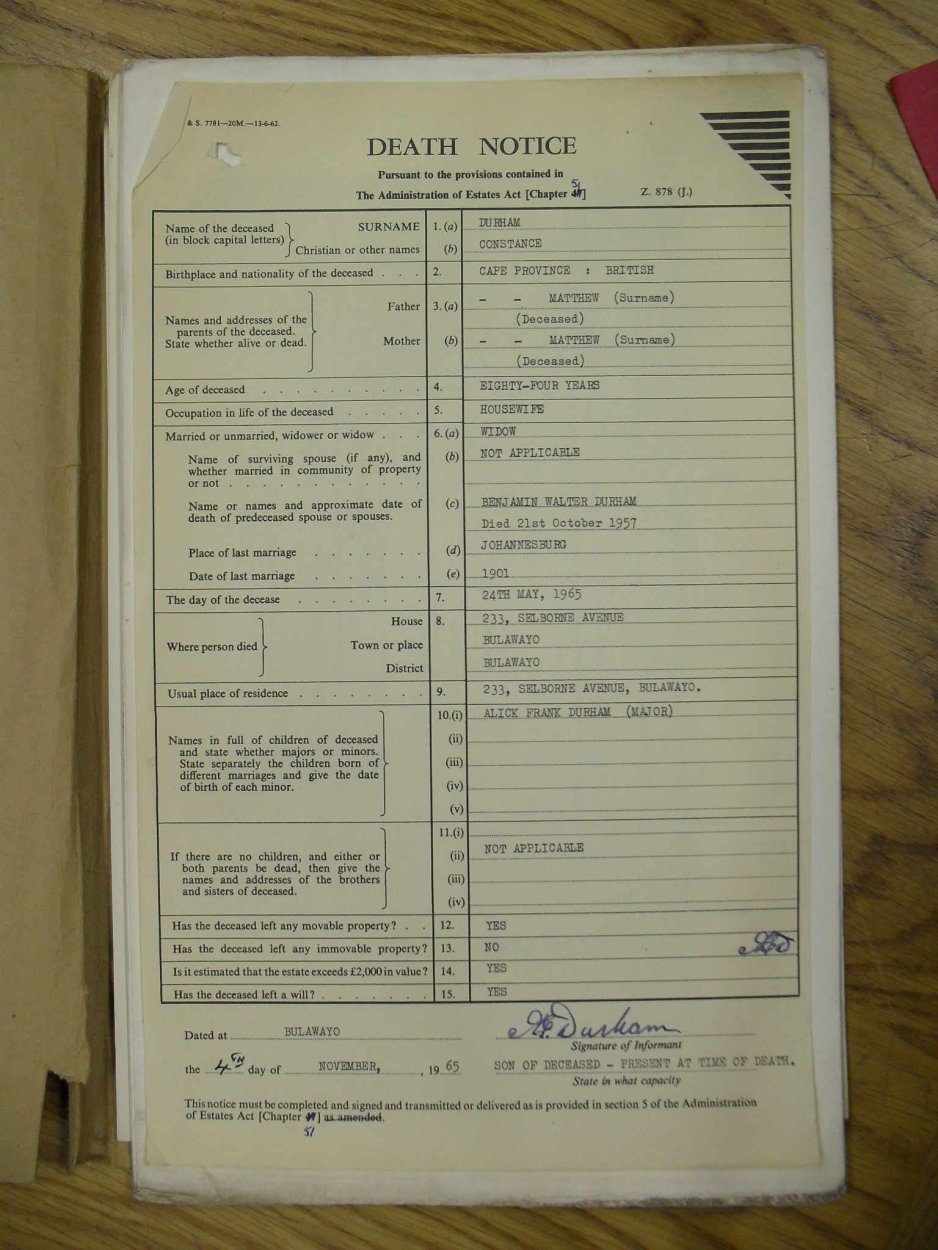 & S. 7781—20M.—13-6-62.
DEATH NOTICE
Pursuant to the provisions contained in
51
The Administration of Estates Act [Chapter ] Z. 878 (J.)
Name of the deceased (in block capital letters) SURNAME 1. (a) DURHAM
Christian or other names (b) CONSTANCE
Birthplace and nationality of the deceased . . . 2. CAPE PROVINCE : BRITISH
Names and addresses of the parents of the deceased. State whether alive or dead. Father 3. (a) - - MATTHEW (Surname)
(Deceased)
Mother (b) - - MATTHEW (Surname)
(Deceased)
Age of deceased . . . . . . . . . . 4. EIGHTY-FOUR YEARS
Occupation in life of the deceased . . . . . 5. HOUSEWIFE
Married or unmarried, widower or widow . . . 6. (a) WIDOW
Name of surviving spouse (if any), and (b) NOT APPLICABLE
whether married in community of property
or not . . . . . . . . . . . .
Name or names and approximate date of (c) BENJAMIN WALTER DURHAM
death of predeceased spouse or spouses. Died 21st October 1957
Place of last marriage . . . . . . . (d) JOHANNESBURG
Date of last marriage . . . . . . . (e) 1901
The day of the decease . . . . . . . . 7. 24TH MAY, 1965
Where person died House 8. 233, SELBORNE AVENUE
Town or place BULAWAYO
District BULAWAYO
Usual place of residence . . . . . . . . 9. 233, SELBORNE AVENUE, BULAWAYO.
10.(i) ALICK FRANK DURHAM (MAJOR)
Names in full of children of deceased (ii)
and state whether majors or minors.
State separately the children born of (iii)
different marriages and give the date
of birth of each minor. (iv)
(v)
11.(i)
If there are no children, and either or (ii) NOT APPLICABLE
both parents be dead, then give the
names and addresses of the brothers (iii)
and sisters of deceased.
(iv)
Has the deceased left any movable property? . . 12. YES
Has the deceased left any immovable property? 13. NO
Is it estimated that the estate exceeds £2,000 in value? 14. YES
Has the deceased left a will? . . . . . . . 15. YES
Dated at BULAWAYO A.F. Durham
Signature of Informant
the 4TH day of NOVEMBER, , 19 65 SON OF DECEASED - PRESENT AT TIME OF DEATH.
State in what capacity
This notice must be completed and signed and transmitted or delivered as is provided in section 5 of the Administration
of Estates Act [Chapter ] as amended.
51